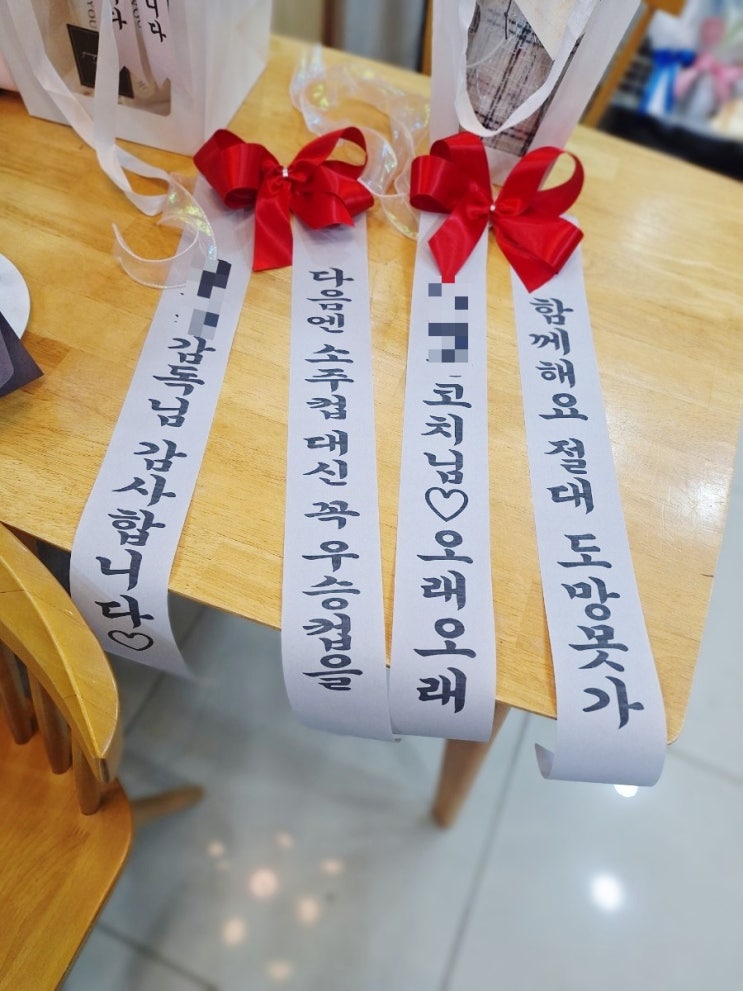 감독님 감사합니다♡
다음엔 소주컵 대신 꼭 우승컵을
코치님♡오래오래
함께해요 절대 도망못가
니다
YOU